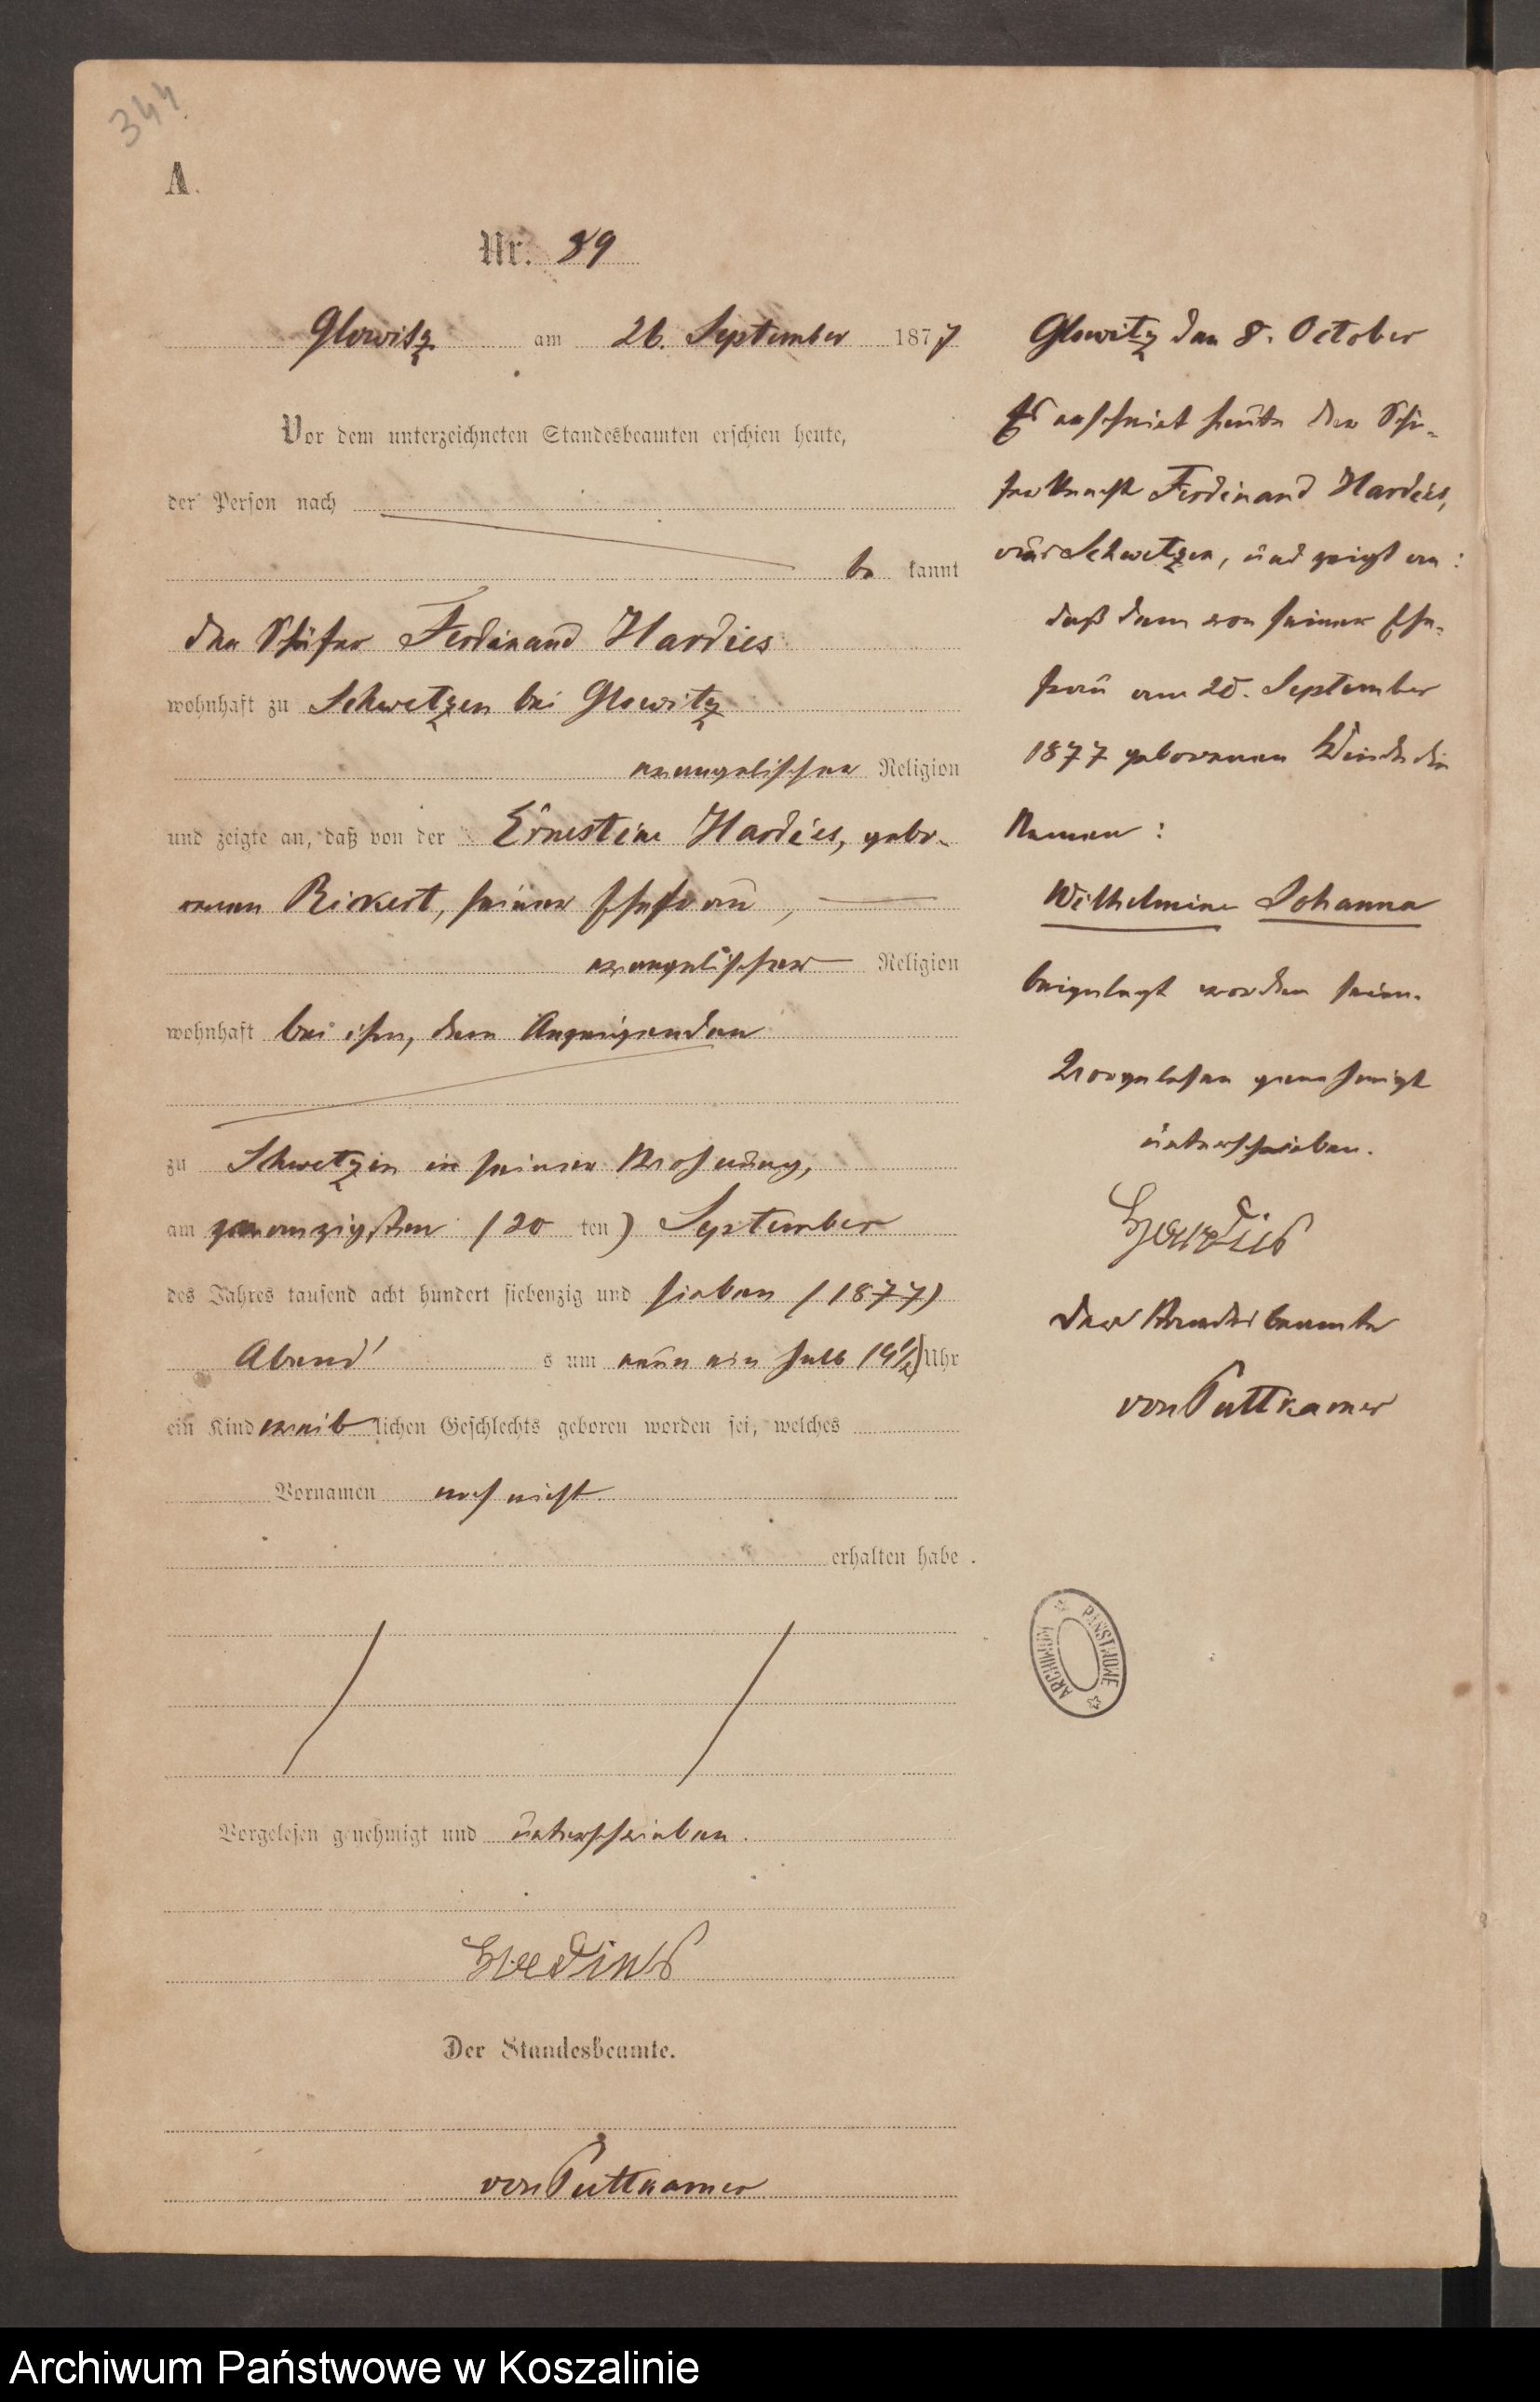 344.
A.
Nr. 89
Glowitz am 26. September 1877
Vor dem unterzeichneten Standesbeamten erschien heute,
der Person nach
be kannt
der Schäfer Ferdinand Hardies
wohnhaft zu Schwetzen bei Glowitz
evangelischer Religion
und zeigte an, daß von der Ernestine Hardies, gebo-
renen Rickert, seiner Ehefrau,
evangelischer Religion
wohnhaft bei ihm, dem Anzeigenden
zu Schwetzen in seiner Wohnung,
am zwanzigsten (20 ten) September
des Jahres tausend acht hundert siebenzig und sieben (1877)
Abend s um neun ein halb (9½) Uhr
ein Kind weib lichen Geschlechts geboren worden sei, welches
Vornamen noch nicht
erhalten habe.
Vorgelesen genehmigt und unterschrieben.
Hardies
Der Standesbeamte.
von Puttkamer
Glowitz den 8. October
Es erscheint heute der Schä-
ferknecht Ferdinand Hardies,
aus Schwetzen, und zeigt an:
daß dem von seiner Ehe-
frau am 20. September
1877 geborenen Kinde die
Namen:
Wilhelmine Johanna
beigelegt worden seien.
Vorgelesen genehmigt
unterschrieben.
Hardies
Der Standesbeamte
von Puttkamer
ARCHIWUM PAŃSTWOWE
Archiwum Państwowe w Koszalinie